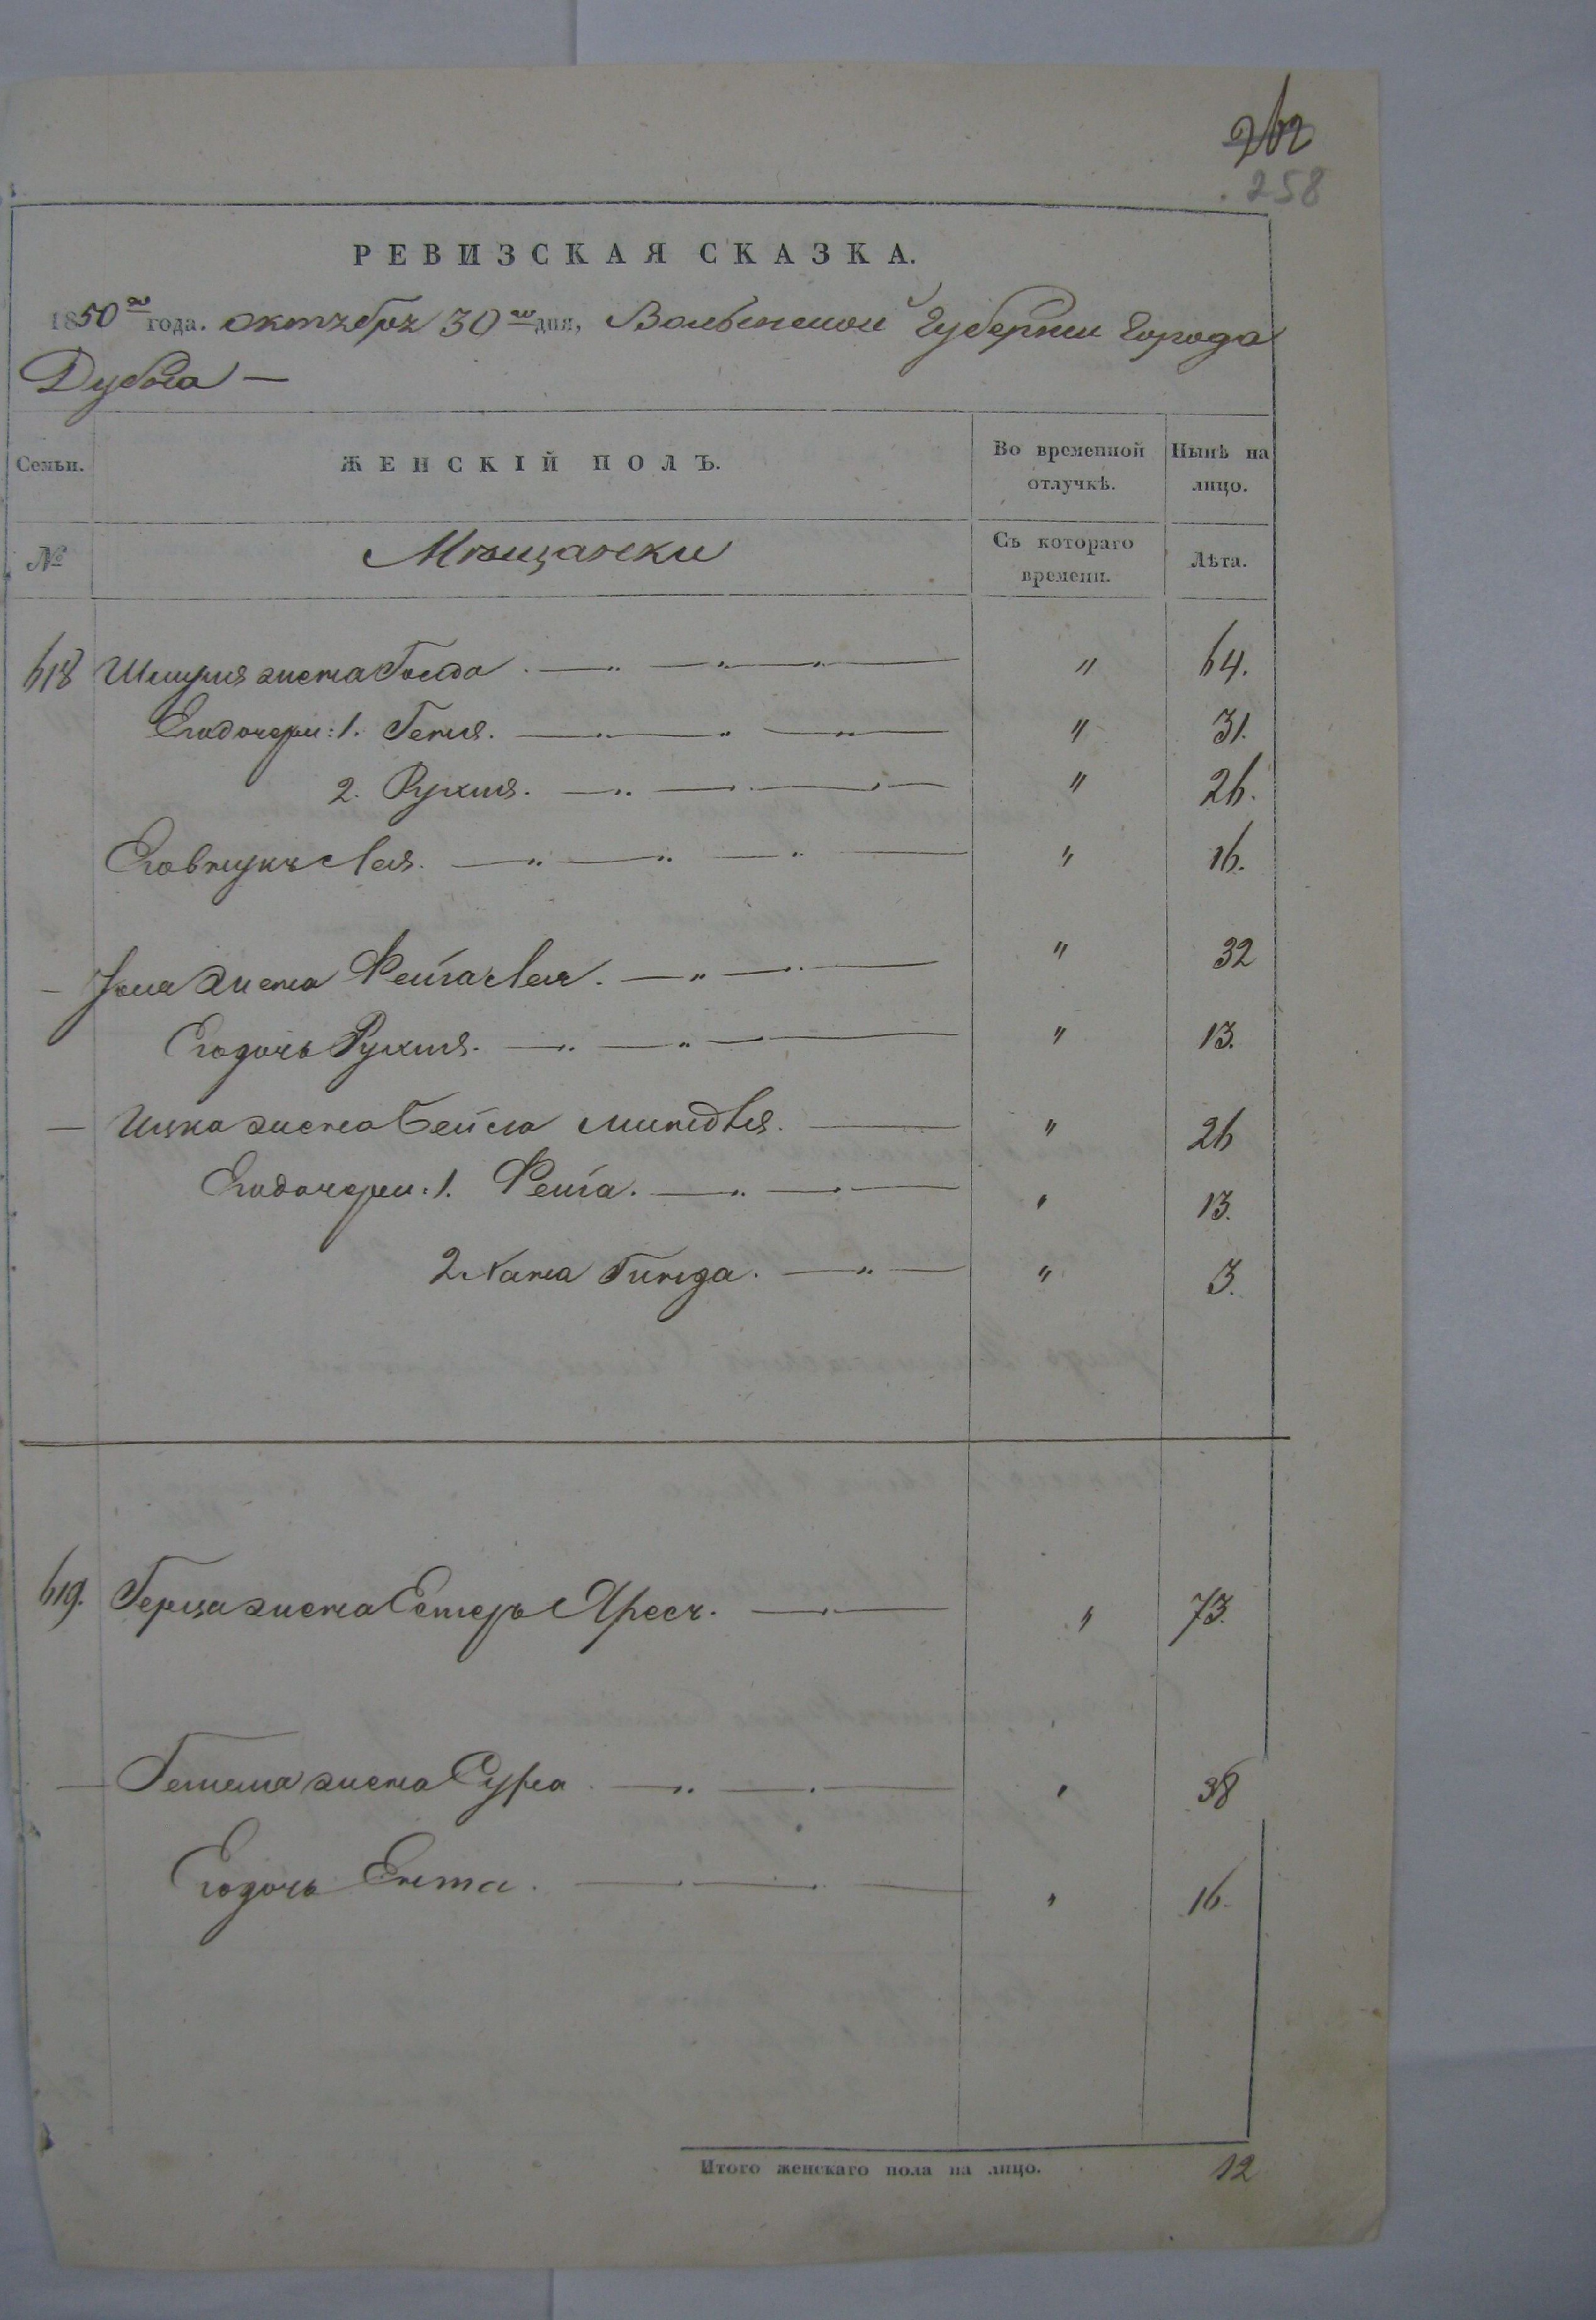 262
258
РЕВИЗСКАЯ СКАЗКА.
1850го года. октября 30го дня, Волынской Губернии Города
Дубна —
Семьи. ЖЕНСКІЙ ПОЛЪ. Во временной отлучкѣ. Нынѣ на лицо.
№ Мѣщанки Съ котораго времени. Лѣта.
618 Шмуля жена Голда. " 64.
Его дочери: 1. Геня. " 31.
2. Рухля. " 26.
Его внучка Лея. " 16.
— жена Фейга Лея. " 32
Его дочь Рухля. " 13.
— Ицка жена Бейла " 26
Его дочери: 1. Фейга. " 13.
2. Хана " 3.
619. Герша жена Естеръ " 73.
— жена Сура " 38
Его дочь Ента. " 16.
Итого женскаго пола на лицо. 12